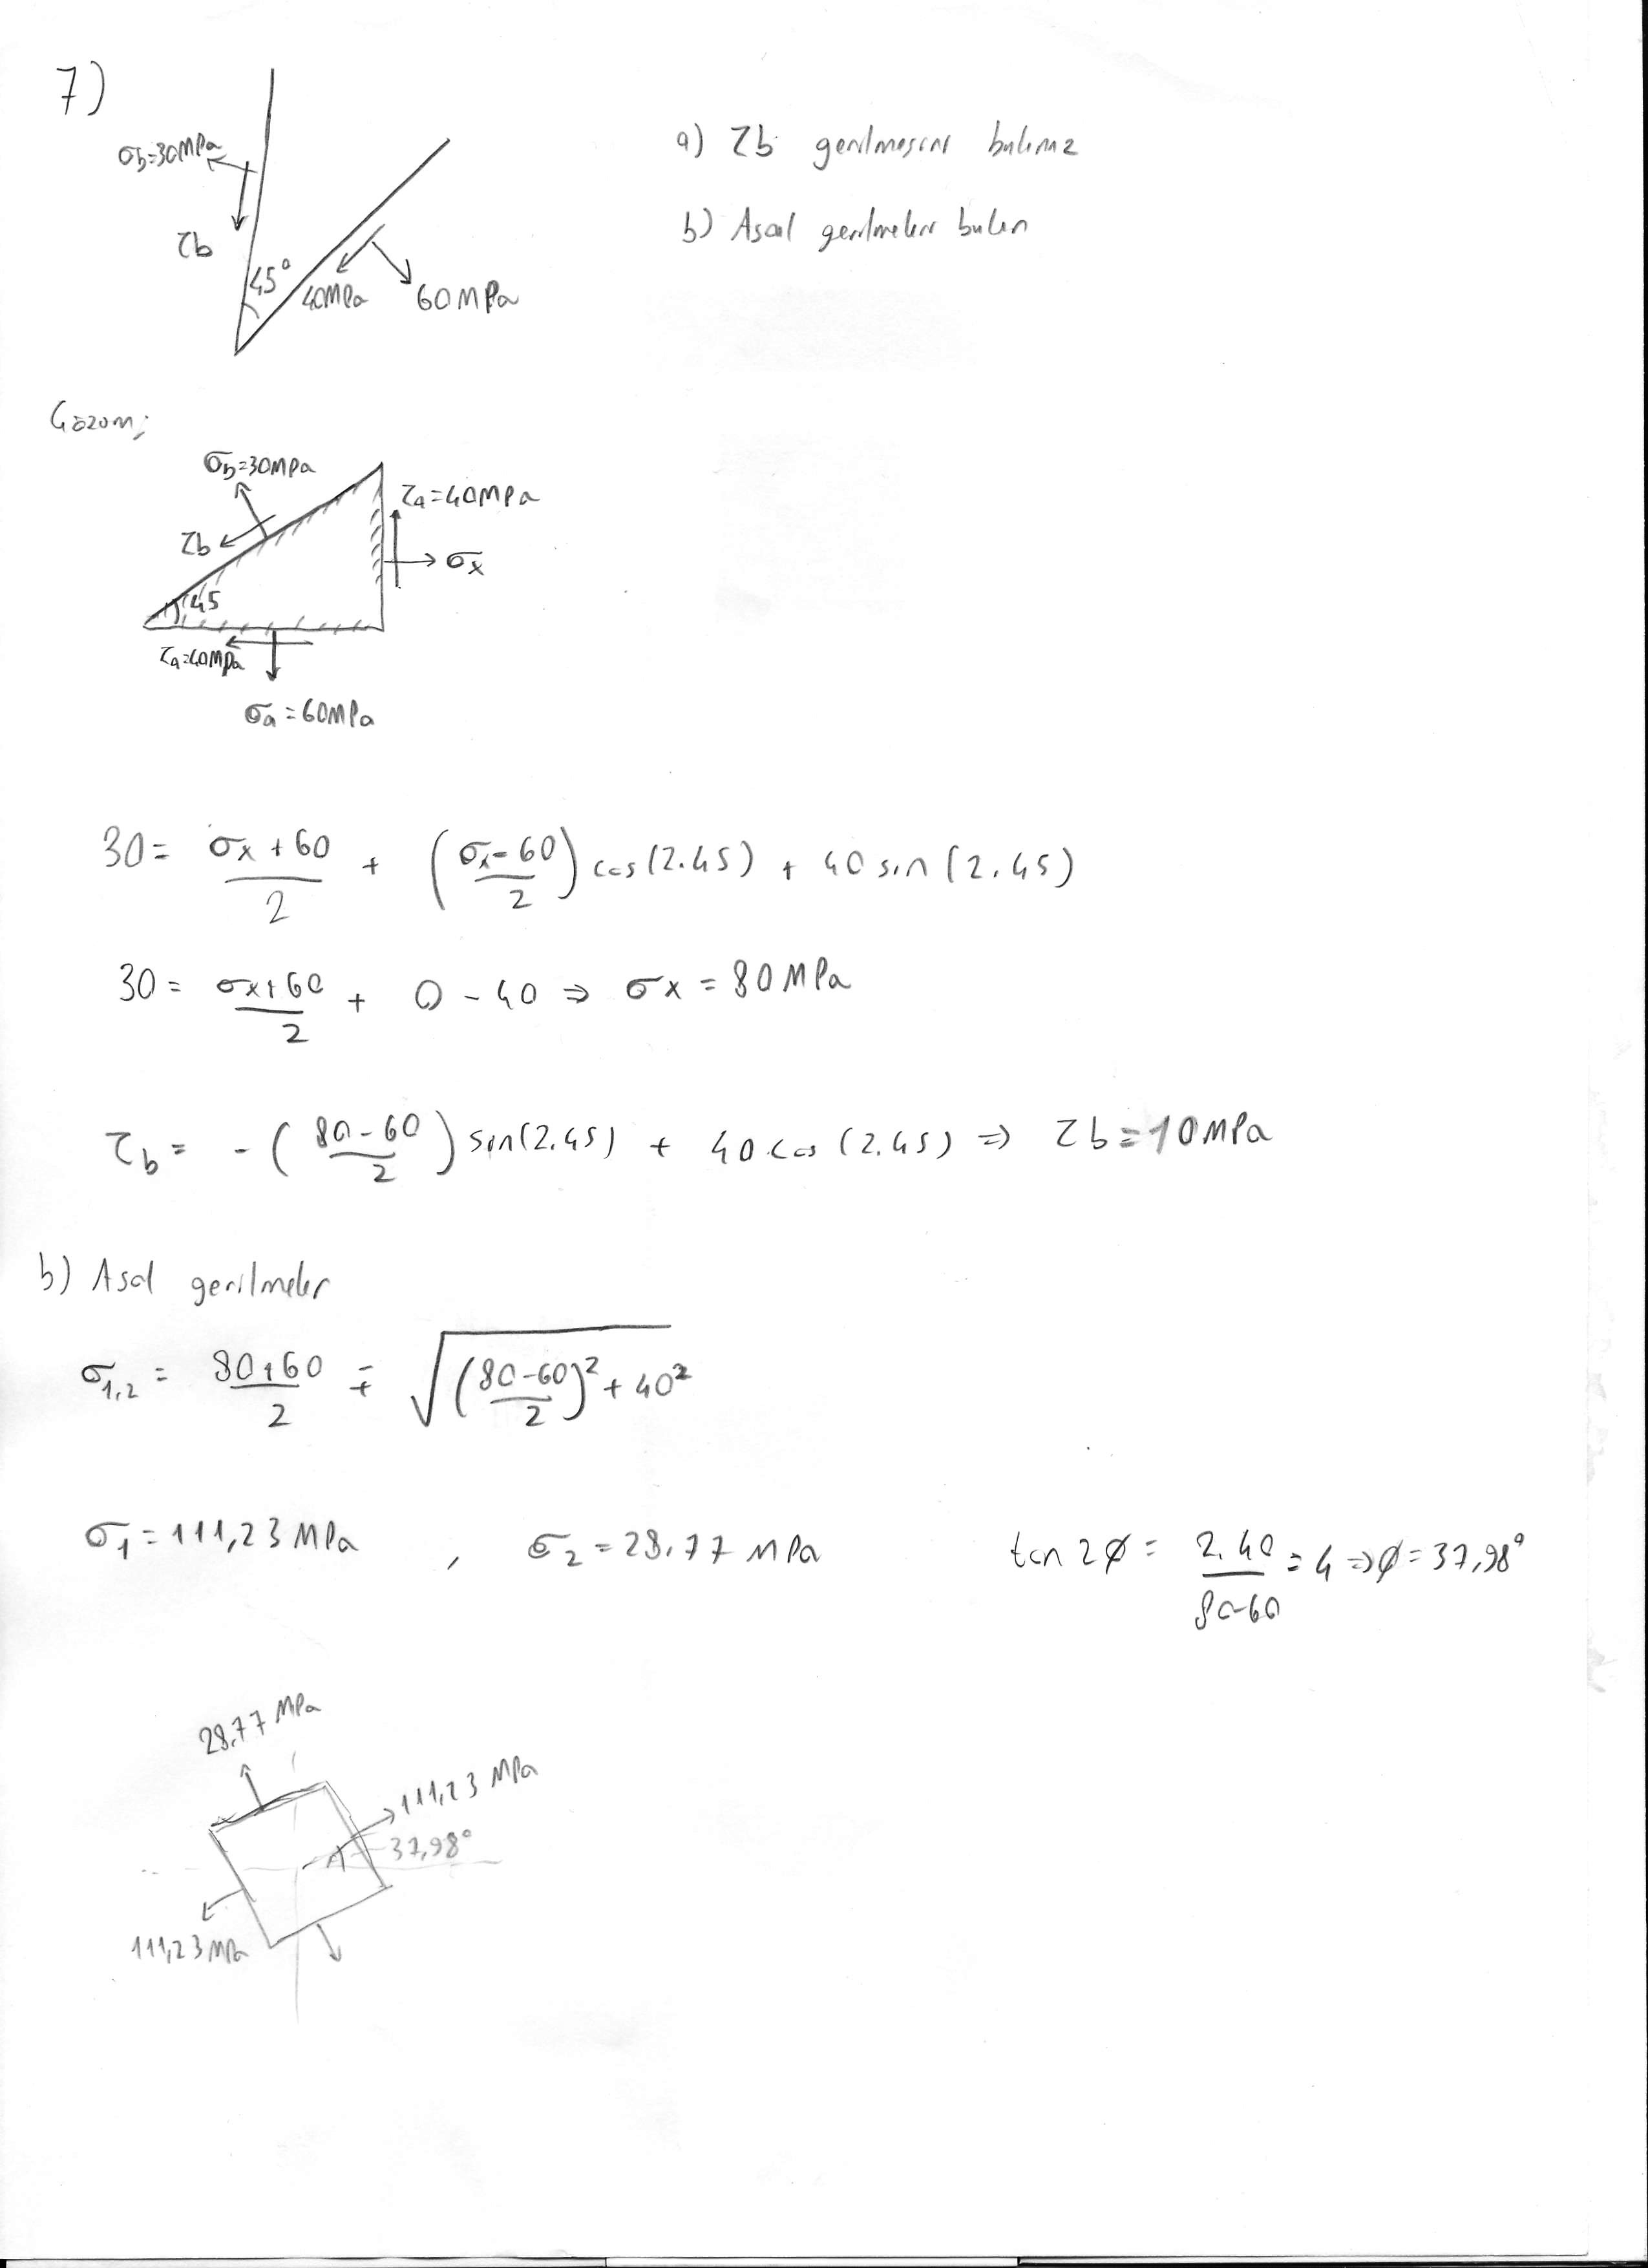 7)
σb=30MPa
τb
45°
40MPa
60MPa
a) τb gerilmesini bulunuz
b) Asal gerilmeleri bulun
Çözüm;
σb=30MPa
τa=40MPa
τb
σx
45
τa=40MPa
σa=60MPa
30 = (σx+60)/2 + ((σx-60)/2) cos(2.45) + 40 sin(2.45)
30 = (σx+60)/2 + 0 - 40 ⇒ σx = 80MPa
τb = -((80-60)/2) sin(2.45) + 40 cos(2.45) ⇒ τb=10MPa
b) Asal gerilmeler
σ1,2 = (80+60)/2 ∓ √(((80-60)/2)²+40²)
σ1=111,23 MPa , σ2=28,77 MPa tan2ø = 2.40/(80-60) = 4 ⇒ ø=37,98°
28,77 MPa
111,23 MPa
37,98°
111,23 MPa